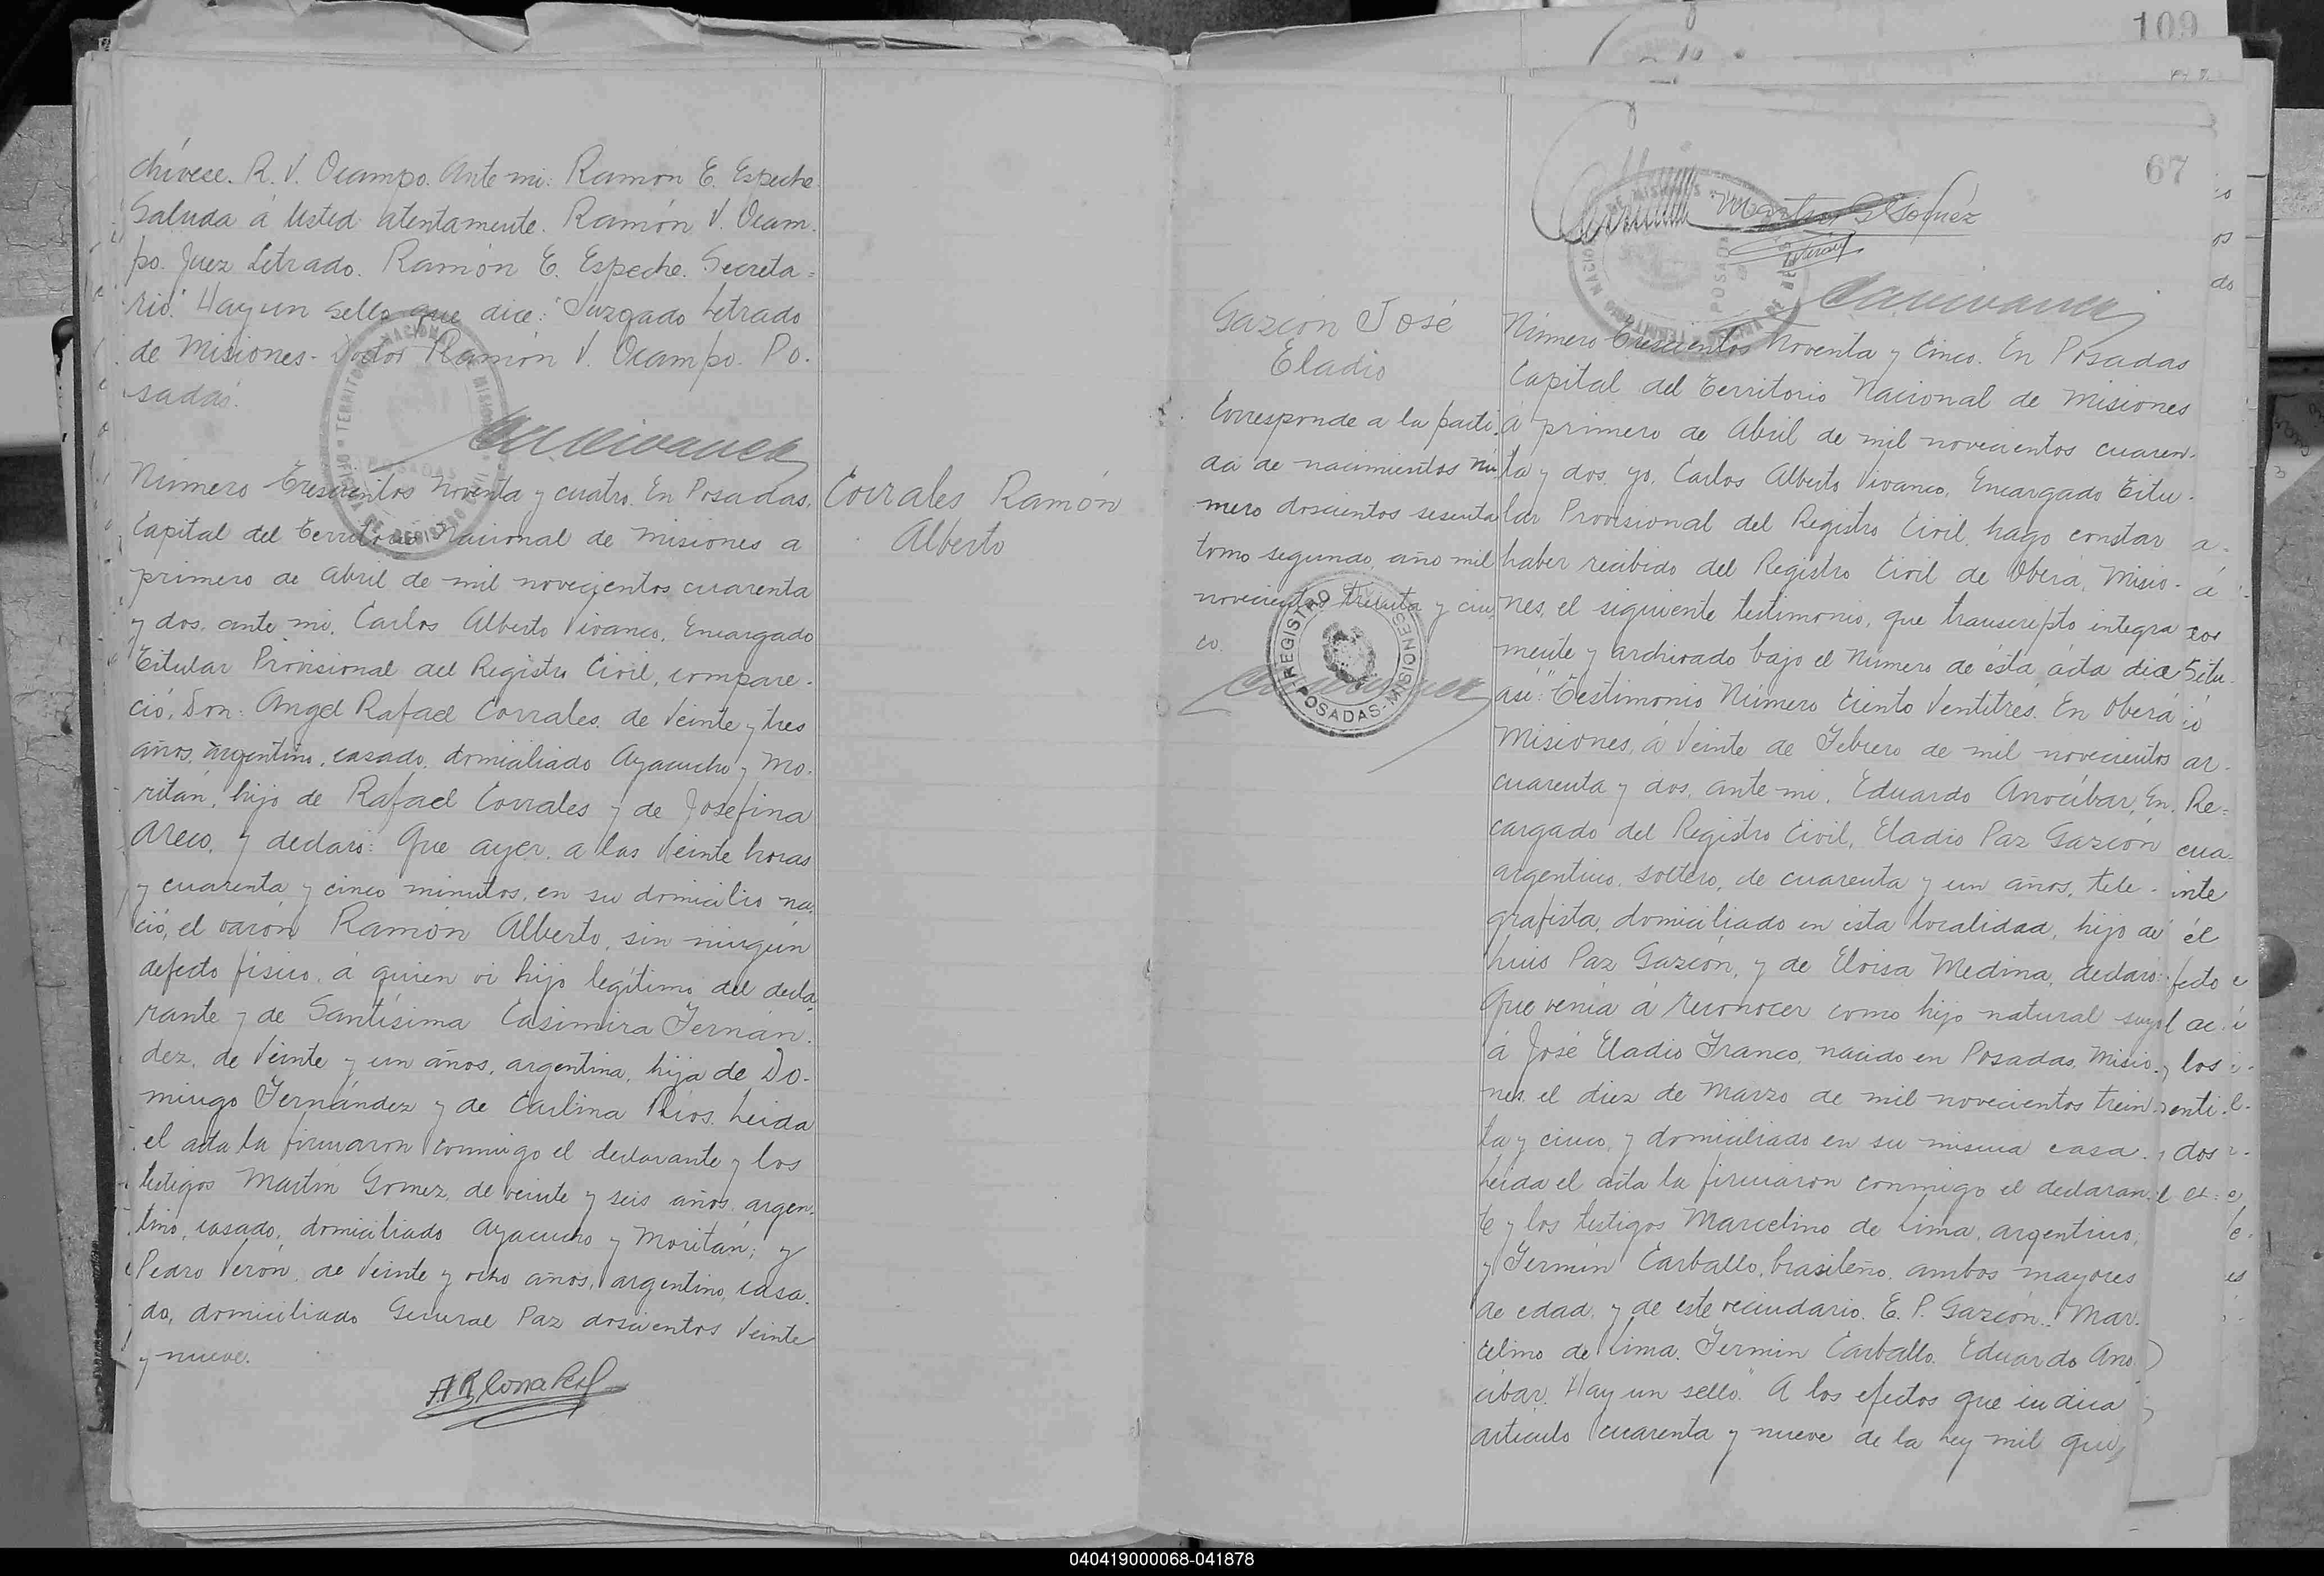 chívese. R. V. Ocampo. Ante mi: Ramón E. Espeche.
Saluda á Usted atentamente. Ramón V. Ocam-
po. Juez Letrado. Ramón E. Espeche. Secreta=
rio." Hay un sello que dice: "Juzgado Letrado
de Misiones- Doctor Ramón V. Ocampo. Po-
sadas.
Número Trescientos Noventa y cuatro. En Posadas,
Capital del Territorio Nacional de Misiones a
primero de Abril de mil novecientos cuarenta
y dos, ante mi, Carlos Alberto Vivanco, Encargado
Titular Provisional del Registro Civil, compare-
ció, Don: Angel Rafael Corrales, de Veinte y tres
años, argentino, casado, domiciliado Ayacucho y Mo-
ritán, hijo de Rafael Corrales y de Josefina
Areco, y declaró: Que ayer, a las Veinte horas
y cuarenta y cinco minutos, en su domicilio na-
ció, el varón Ramón Alberto, sin ningún
defecto físico, á quien vi hijo legítimo del decla-
rante y de Santísima Casimira Fernán-
dez, de Veinte y un años, argentina, hija de Do-
mingo Fernández y de Carlina Rios. Leida
el acta la firmaron conmigo el declarante y los
testigos Martín Gomez, de veinte y seis años, argen-
tino, casado, domiciliado Ayacucho y Moritán; y
Pedro Verón, de Veinte y ocho años, argentino, casa-
do, domiciliado General Paz doscientos Veinte
y nueve.
Corrales Ramón
Alberto
109
67
Gazcón José
Eladio
Corresponde a la parti-
da de nacimientos nú-
mero doscientos sesenta
tomo segundo, año mil
novecientos treinta y cin-
co.
REGISTRO CIVIL
POSADAS-MISIONES
Número Trescientos Noventa y Cinco. En Posadas
Capital del Territorio Nacional de Misiones
á primero de Abril de mil novecientos cuaren-
ta y dos, yo, Carlos Alberto Vivanco, Encargado Titu-
lar Provisional del Registro Civil, hago constar
haber recibido del Registro Civil de Oberá, Misio-
nes, el siguiente testimonio, que transcripto integra
mente y archivado bajo el Número de ésta acta dice
así: "Testimonio Número Ciento Ventitrés. En Oberá
Misiones, á Veinte de Febrero de mil novecientos
cuarenta y dos, ante mi, Eduardo Anocíbar, En-
cargado del Registro Civil, Eladio Paz Gazcón
argentino, soltero, de cuarenta y un años, tele-
grafista, domiciliado en ésta localidad, hijo de
Luis Paz Gazcón, y de Eloisa Medina, declaró:
Que venía á reconocer como hijo natural suyo
á José Eladio Franco, nacido en Posadas, Misio-
nes, el diez de Marzo de mil novecientos trein-
ta y cinco, y domiciliado en su misma casa.
Leida el acta la firmaron conmigo el declaran-
te y los testigos Marcelino de Lima, argentino,
y Fermín Carballo, brasileño, ambos mayores
de edad, y de este vecindario. E. P. Gazcón. Mar-
celino de Lima. Fermín Carballo. Eduardo Ano-
cíbar. Hay un sello." A los efectos que indica
artículo cuarenta y nueve de la Ley mil qui
040419000068-041878